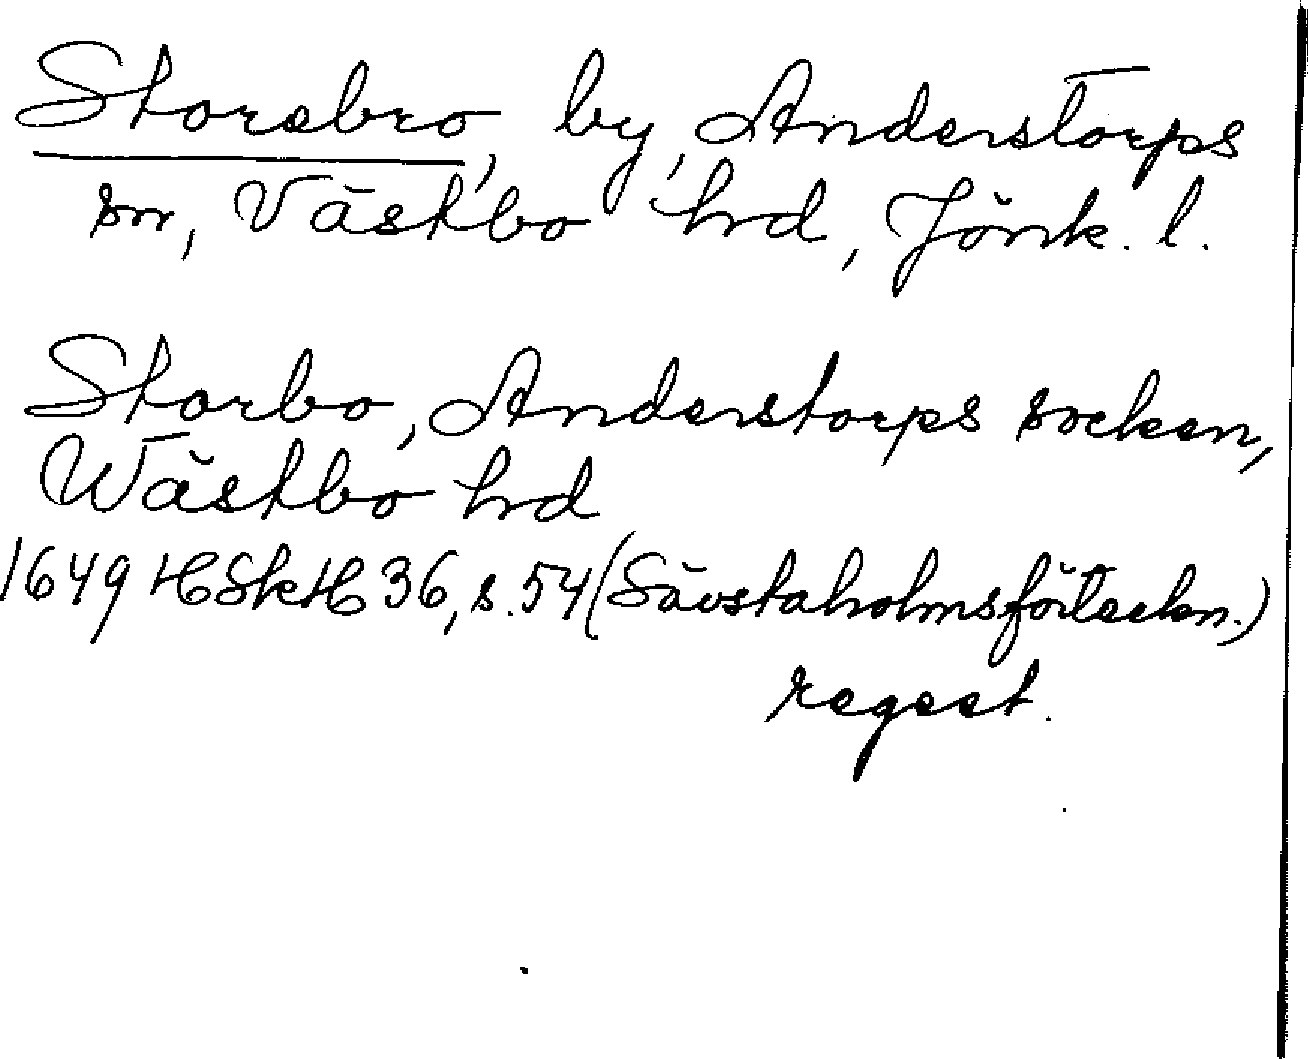 Storebro, by, Anderstorps
sn, Västbo hrd, Jönk. l.
Storbo, Anderstorps socken,
Wästbo hrd
1649 HSkH 36, s. 54 (Sävstaholmsförteckn.)
regest.